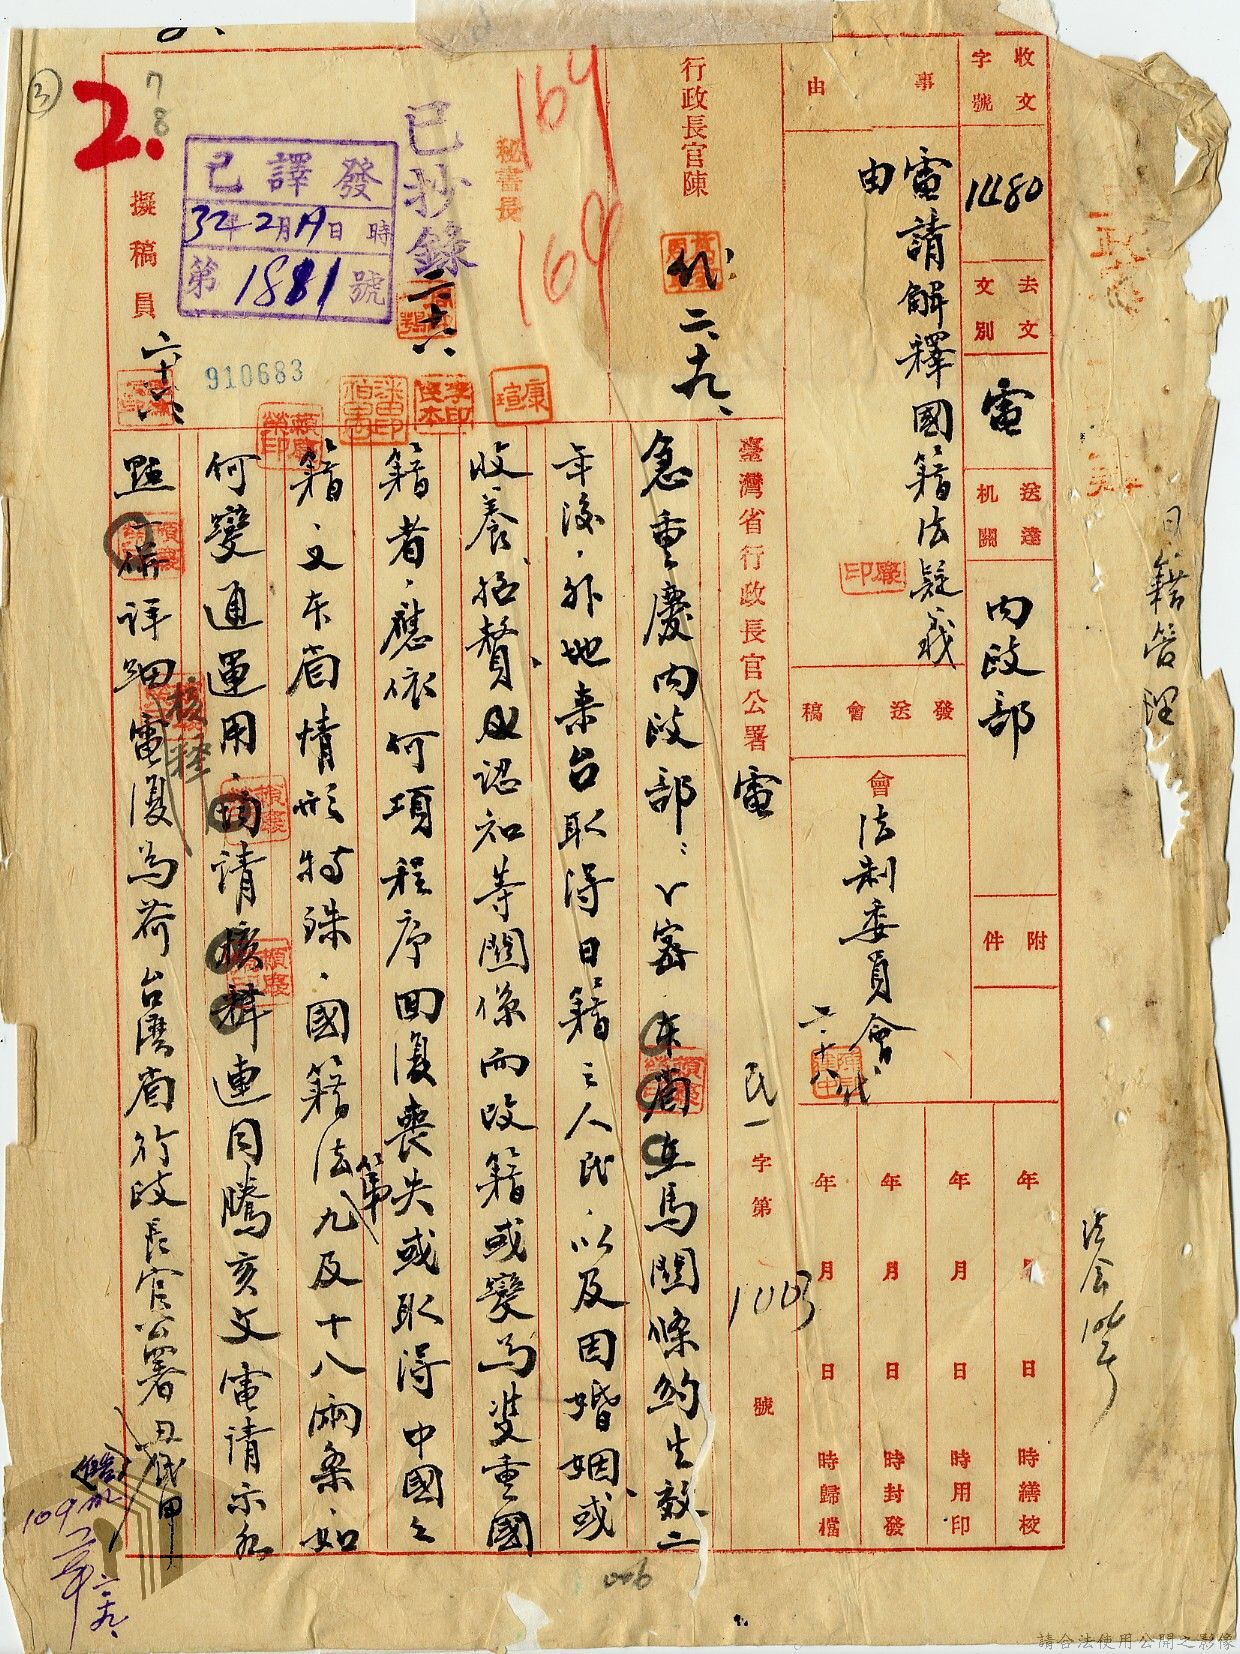 日籍管理
收文字號
1480
去文文別
電
送達机關
內政部
附件
事由
電請解釋國籍法疑義由
發送會稿
會法制委員會
二十八
年 月 日 時繕校
年 月 日 時用印
年 月 日 時封發
年 月 日 時歸檔
行政長官陳
代
二、十九、
秘書長
169
169
已抄錄
已譯發
32年2月19日 時
第1881號
擬稿員
910683
康瑄
2.
78
3
臺灣省行政長官公署電
民一字第1003號
急重慶內政部:丫密本省在馬關條約生效二
年後,外地來台取得日籍之人民,以及因婚姻、或
收養、招贅、及認知等關係而改籍或變為雙重國
籍者,應依何項程序回復喪失或取得中國之
籍,又本省情形特殊,國籍法第九及十八兩条,如
何變通運用,均請核釋連同騰亥文電請示各
點一併詳細核釋電復為荷台灣省行政長官公署丑 民甲
二、十九、
請合法使用公開之影像